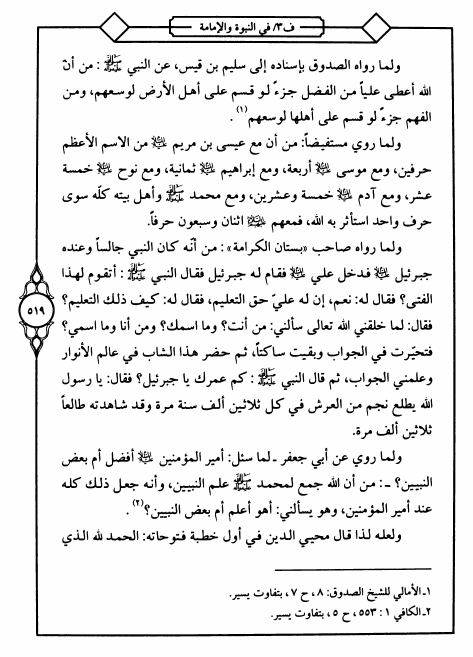 ف٣/ في النبوة والإمامة
ولما رواه الصدوق بإسناده إلى سليم بن قيس، عن النبي ﷺ: من أنّ
الله أعطى علياً من الفضل جزءً لو قسم على أهل الأرض لوسعهم، ومن
الفهم جزءً لو قسم على أهلها لوسعهم(١).
ولما روي مستفيضاً: من أن مع عيسى بن مريم من الاسم الأعظم
حرفين، ومع موسى أربعة، ومع إبراهيم ثمانية، ومع نوح خمسة
عشر، ومع آدم خمسة وعشرين، ومع محمد ﷺ وأهل بيته كلّه سوى
حرف واحد استأثر به الله، فمعهم اثنان وسبعون حرفاً.
ولما رواه صاحب «بستان الكرامة»: من أنّه كان النبي جالساً وعنده
جبرئيل فدخل علي فقام له جبرئيل فقال النبي ﷺ: أتقوم لهذا
الفتى؟ فقال له: نعم، إن له عليّ حق التعليم، فقال له: كيف ذلك التعليم؟
فقال: لما خلقني الله تعالى سألني: من أنت؟ وما اسمك؟ ومن أنا وما اسمي؟
فتحيّرت في الجواب وبقيت ساكتاً، ثم حضر هذا الشاب في عالم الأنوار
وعلمني الجواب، ثم قال النبي ﷺ: كم عمرك يا جبرئيل؟ فقال: يا رسول
الله يطلع نجم من العرش في كل ثلاثين ألف سنة مرة وقد شاهدته طالعاً
ثلاثين ألف مرة.
ولما روي عن أبي جعفر ـ لما سئل: أمير المؤمنين أفضل أم بعض
النبيين؟ ـ: من أن الله جمع لمحمد ﷺ علم النبيين، وأنه جعل ذلك كله
عند أمير المؤمنين، وهو يسألني: أهو أعلم أم بعض النبيين؟(٢).
ولعله لذا قال محيي الدين في أول خطبة فتوحاته: الحمد لله الذي
١ـ الأمالي للشيخ الصدوق: ٨، ح ٧، بتفاوت يسير.
٢ـ الكافي ١: ٥٥٣، ح ٥، بتفاوت يسير.
٥١٩